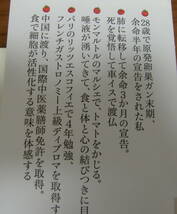 28歳で原発卵巣ガン末期、
余命半年の宣告をされる私
肺に転移して余命3か月の宣告。
死を覚悟して車イスで渡仏
モンマルトルのマルシェで、トマトをかじる。
唾液が湧いてきて、食と体と心の結びつきに目
パリのリッツ・エスコフィエで4年勉強、
フレンチガストロノミー上級ディプロマを取得す
中国に渡り、国際中医薬膳師免許を取得。
食で細胞が活性化する意味を体感する